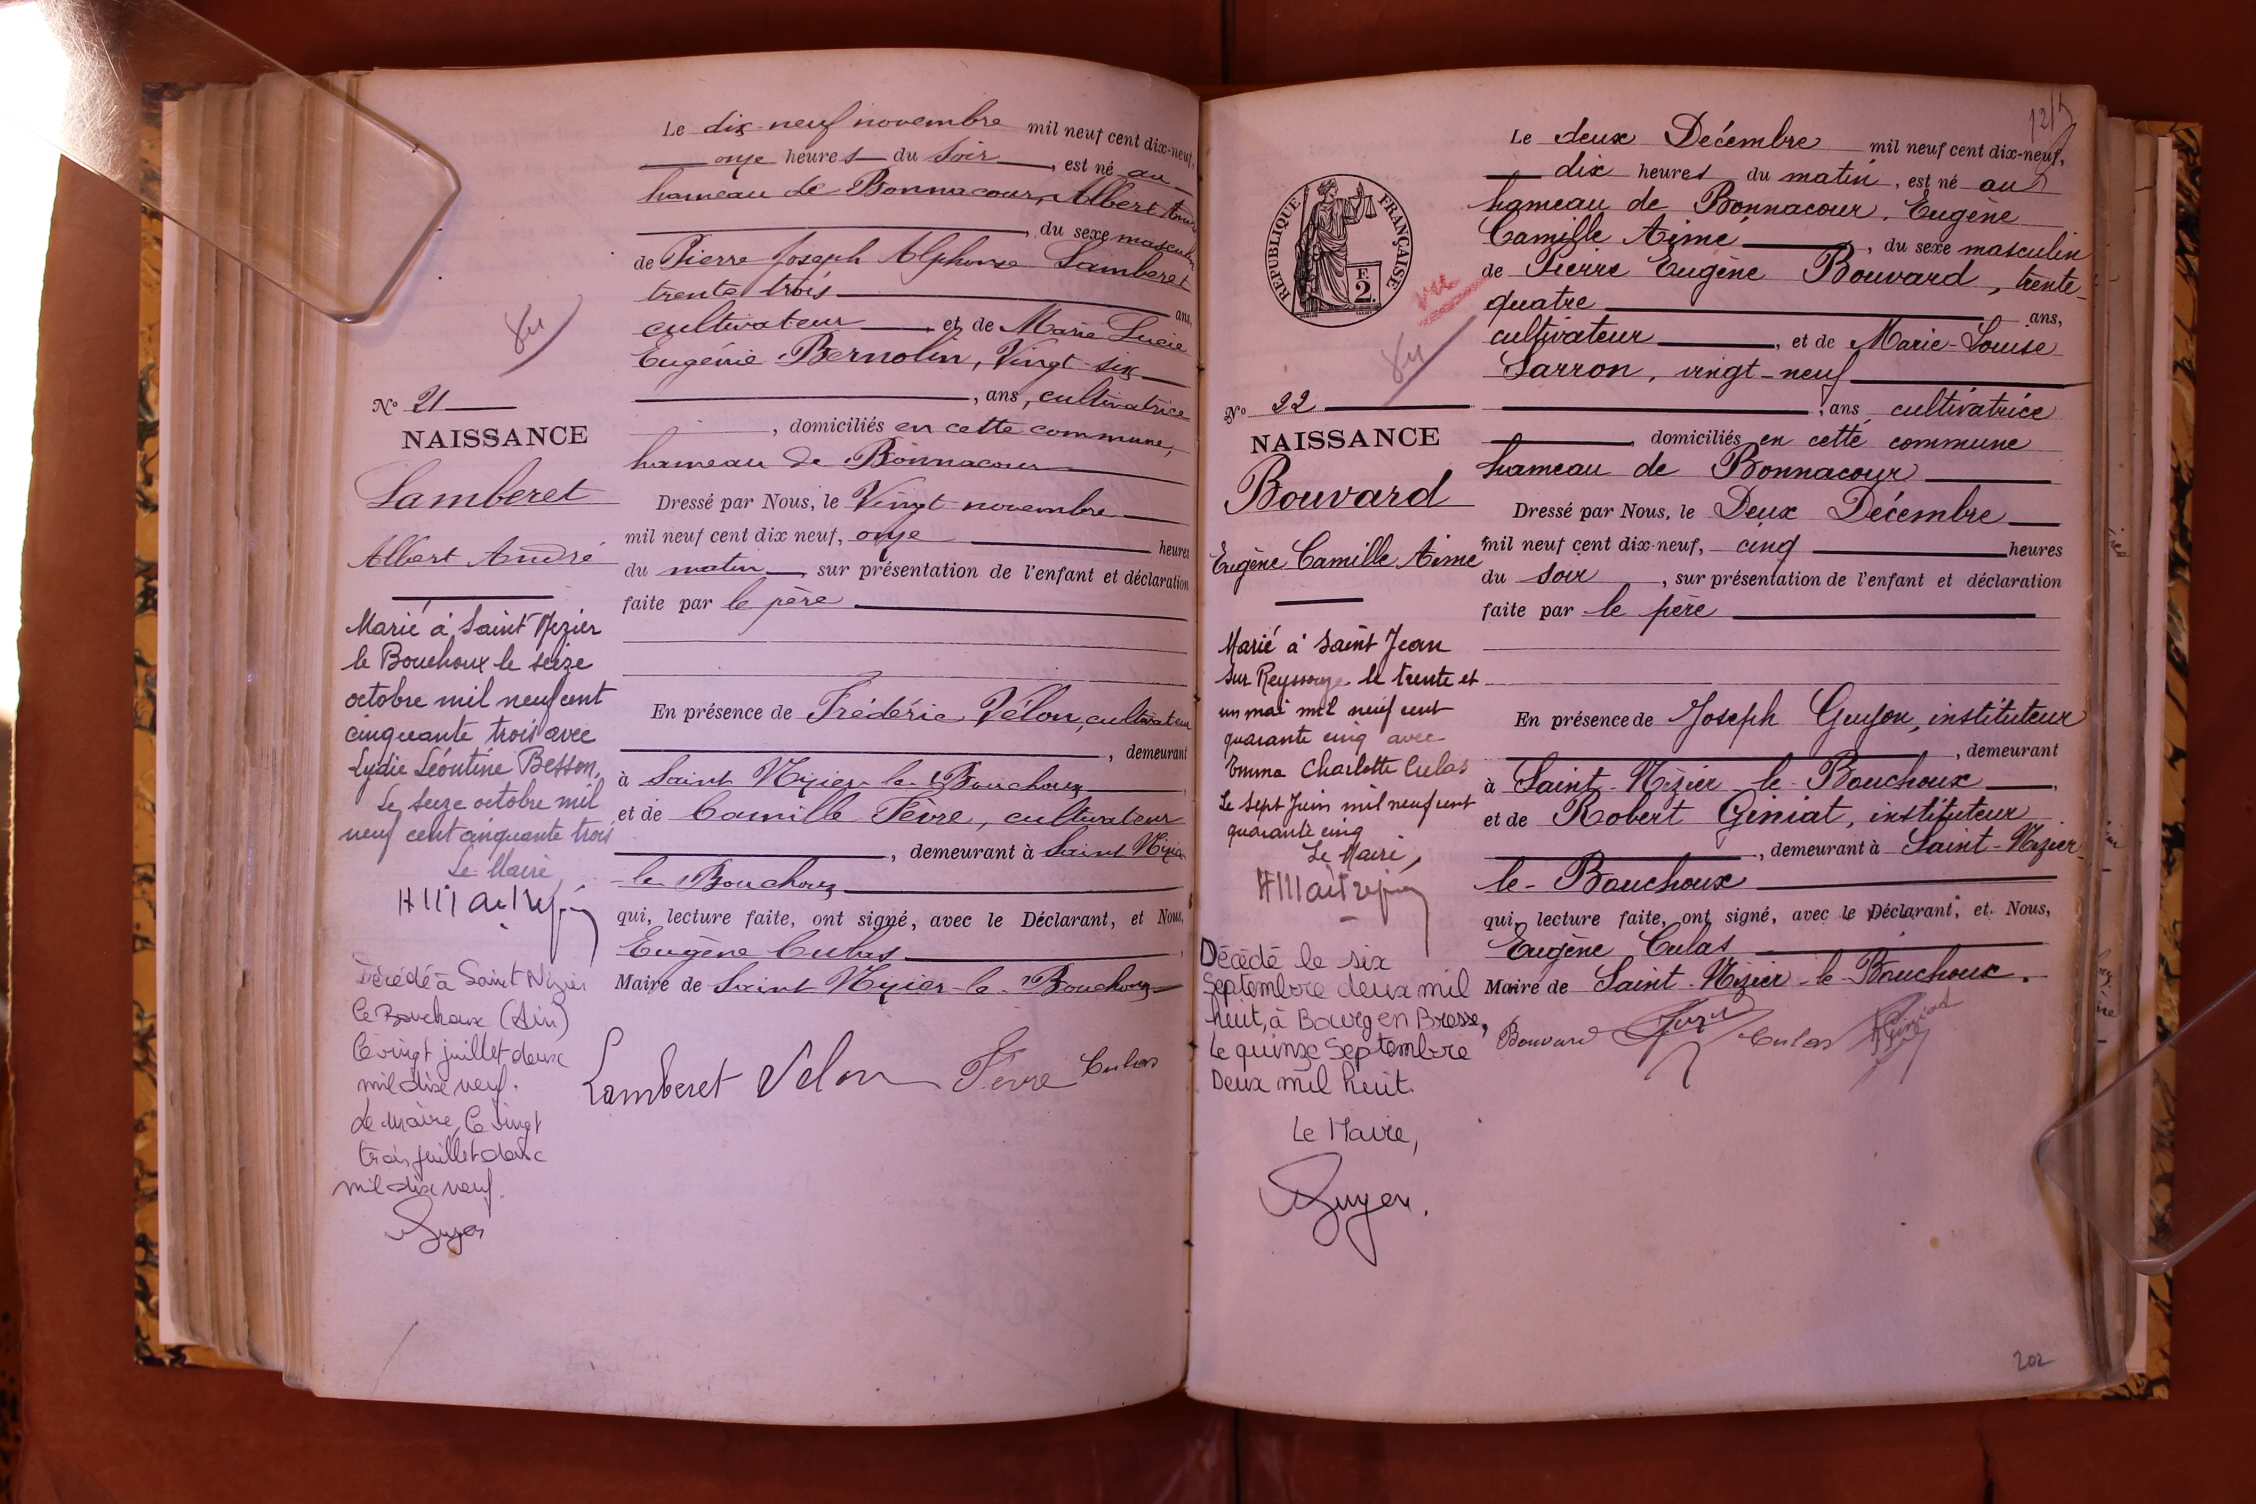 Le dix-neuf novembre mil neuf cent dix-neuf,
onze heures du soir, est né au
hameau de Bonnacour, Albert André
, du sexe masculin
de Pierre Joseph Alphonse Lamberet
trente trois ans,
cultivateur et de Marie Lucie
Eugénie Bernolin, Vingt-six
, ans, cultivatrice
, domiciliés en cette commune,
hameau de Bonnacour
Dressé par Nous, le Vingt novembre
mil neuf cent dix neuf, onze heures
du matin, sur présentation de l'enfant et déclaration
faite par le père
En présence de Frédéric Vélon, cultivateur
, demeurant
à Saint Nizier-le-Bouchoux,
et de Camille Fèvre, cultivateur
, demeurant à Saint Nizier
le Bouchoux
qui, lecture faite, ont signé, avec le Déclarant, et Nous,
Eugène Culas,
Maire de Saint Nizier-le-Bouchoux
Lamberet Velon Fèvre Culas
Vu
N° 21
NAISSANCE
Lamberet
Albert André
Marié à Saint Nizier
le Bouchoux le seize
octobre mil neuf cent
cinquante trois avec
Lydie Léontine Besson,
Le seize octobre mil
neuf cent cinquante trois
Le Maire
Décédé à Saint Nizier
le Bouchoux (Ain)
le vingt juillet deux
mil dix neuf.
Le Maire, le vingt
trois juillet deux
mil dix neuf.
Guyon
Le deux Décembre mil neuf cent dix-neuf,
dix heures du matin, est né au
hameau de Bonnacour, Eugène
Camille Aimé, du sexe masculin
de Pierre Eugène Bouvard, trente-
quatre ans,
cultivateur, et de Marie-Louise
Sarron, vingt-neuf
, ans cultivatrice
, domiciliés en cette commune
hameau de Bonnacour
Dressé par Nous, le Deux Décembre
mil neuf cent dix-neuf, cinq heures
du soir, sur présentation de l'enfant et déclaration
faite par le père
En présence de Joseph Guyon, instituteur
, demeurant
à Saint-Nizier-le-Bouchoux,
et de Robert Géniat, instituteur
, demeurant à Saint-Nizier-
le-Bouchoux
qui, lecture faite, ont signé, avec le Déclarant, et Nous,
Eugène Culas
Maire de Saint-Nizier-le-Bouchoux.
Bouvard Culas Géniat
RÉPUBLIQUE FRANÇAISE
F.
2.
vu
Vu
N° 22
NAISSANCE
Bouvard
Eugène Camille Aimé
Marié à Saint Jean
sur Reyssouze le trente et
un mai mil neuf cent
quarante cinq avec
Emma Charlotte Culas
Le sept Juin mil neuf cent
quarante cinq
Le Maire,
Décédé le six
Septembre deux mil
huit, à Bourg en Bresse,
Le quinze Septembre
Deux mil huit.
Le Maire,
Guyon.
202